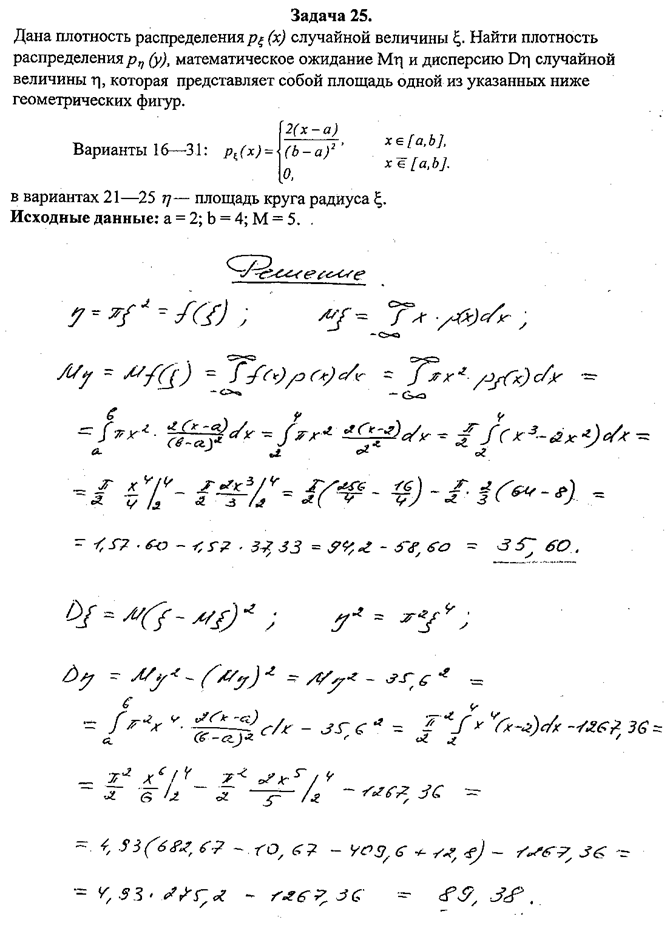 Задача 25.
Дана плотность распределения pξ (x) случайной величины ξ. Найти плотность
распределения pη (y), математическое ожидание Mη и дисперсию Dη случайной
величины η, которая представляет собой площадь одной из указанных ниже
геометрических фигур.
Варианты 16—31: pξ(x) = { 2(x − a)/(b − a)², x ∈ [a,b],
0, x ∈̅ [a,b].
в вариантах 21—25 η — площадь круга радиуса ξ.
Исходные данные: a = 2; b = 4; M = 5.
Решение
η = πξ² = f(ξ) ; Mξ = ∫_{-∞}^{∞} x · p(x)dx ;
Mη = Mf(ξ) = ∫_{-∞}^{∞} f(x)p(x)dx = ∫_{-∞}^{∞} πx² · pξ(x)dx =
= ∫_a^b πx² · 2(x-a)/(b-a)² dx = ∫_2^4 πx² 2(x-2)/2² dx = π/2 ∫_2^4 (x³ - 2x²)dx =
= π/2 x⁴/4 |_2^4 - π/2 2x³/3 |_2^4 = π/2 (256/4 - 16/4) - π/2 · 2/3 (64 - 8) =
= 1,57 · 60 - 1,57 · 37,33 = 94,2 - 58,60 = 35,60.
Dξ = M(ξ - Mξ)² ; η² = π²ξ⁴ ;
Dη = Mη² - (Mη)² = Mη² - 35,6² =
= ∫_a^b π²x⁴ · 2(x-a)/(b-a)² dx - 35,6² = π²/2 ∫_2^4 x⁴(x-2)dx - 1267,36 =
= π²/2 · x⁶/6 |_2^4 - π²/2 2x⁵/5 |_2^4 - 1267,36 =
= 4,93(682,67 - 10,67 - 409,6 + 12,8) - 1267,36 =
= 4,93 · 275,2 - 1267,36 = 89,38.